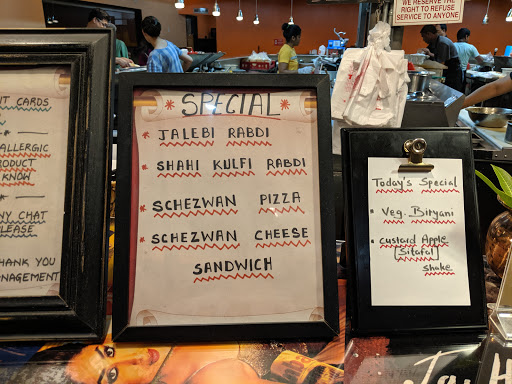 WE RESERVE THE
RIGHT TO REFUSE
SERVICE TO ANYONE
T CARDS
ALLERGIC
PRODUCT
KNOW
NY CHAT
LEASE
THANK YOU
NAGEMENT
* SPECIAL *
* JALEBI RABDI
* SHAHI KULFI RABDI
* SCHEZWAN PIZZA
* SCHEZWAN CHEESE
SANDWICH
Today's Special
• Veg. Biryani
• custard Apple
[Sitafal]
shake